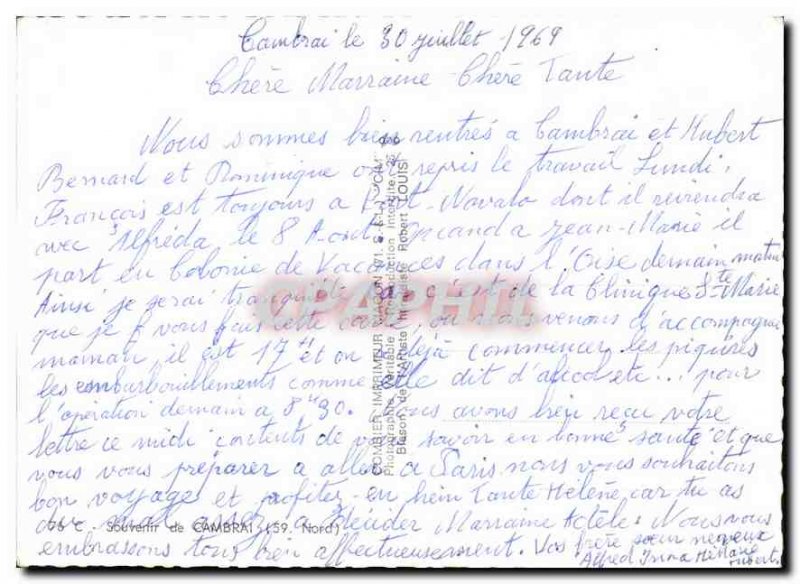 Cambrai le 30 juillet 1969
Chère Marraine - Chère Tante
Nous sommes bien rentrés a Cambrai et Hubert
Bernard et Dominique ont repris le travail Lundi.
François est toujours a Port-Navalo dont il reviendra
avec Alfréda le 8 Aout. Quand a Jean-Marie il
part en Colonie de Vacances dans l'Oise demain matin
Ainsi je serai c'est de la Clinique Ste Marie
que je vous fais cette carte ou nous venons d'accompagner
maman, il est 17H et on a déjà commencer les piqûres
les embarbouillements comme elle dit d'alcool etc... pour
l'opération demain a 8H30. Nous avons bien reçu votre
lettre ce midi contents de vous savoir en bonne santé et que
vous vous préparer a aller a Paris nous vous souhaitons
bon voyage et profiter-en bien Tante Hélène car tu as
décider Marraine Adèle. Nous vous
embrassons tous bien affectueusement. Vos frère sœur neveux
Alfred Irma Hubert
COMBIER IMPRIMEUR MACON (71. S.-&-L.) "CIM"
Photographie Véritable - Reproduction Interdite
Blason de l'Artiste Héraldiste Robert LOUIS
76 C - Souvenir de CAMBRAI (59. Nord)
CPAPHIL